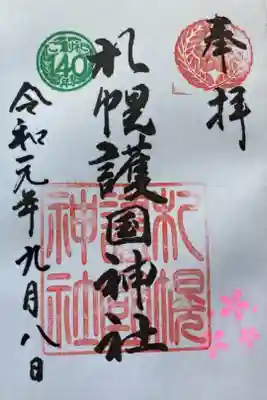 奉拝
札幌護国神社
札幌
護国
神社
140
令和元年九月八日